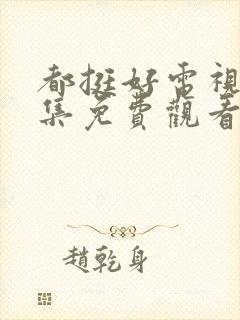 都挺好電視
集免費觀看
趙乾身